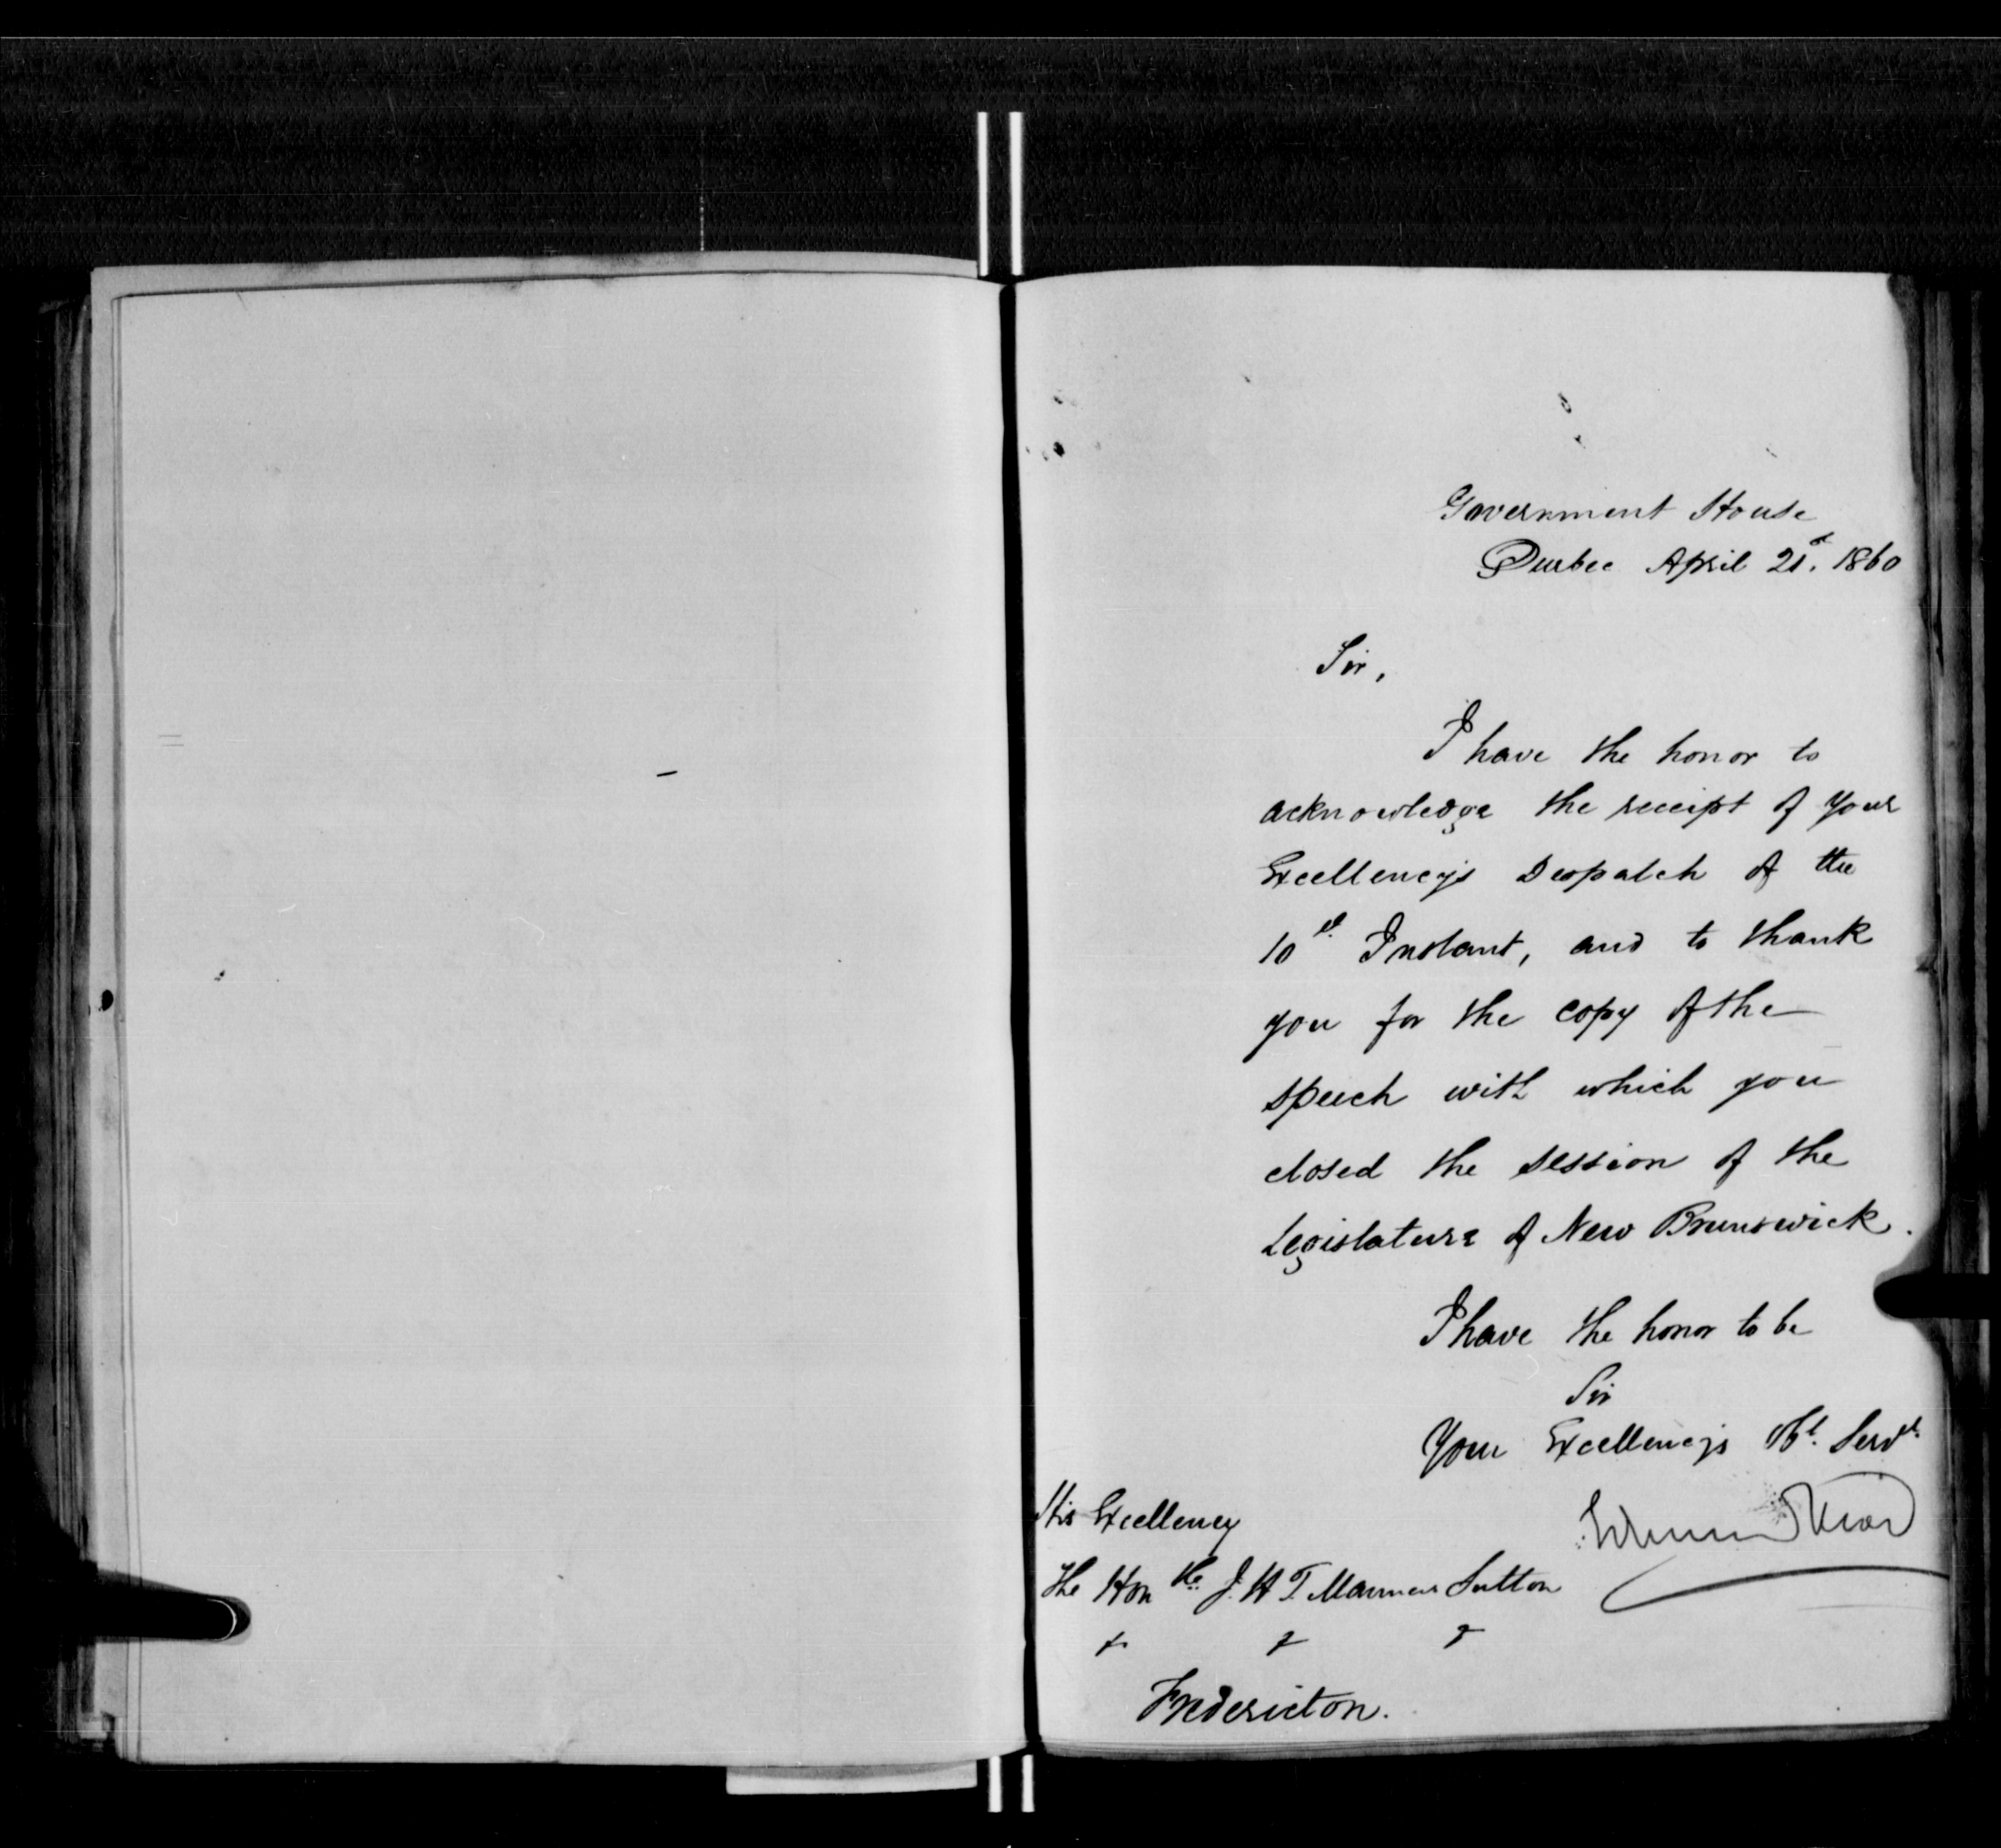 Government House
Quebec April 21st. 1860
Sir,
I have the honor to
acknowledge the receipt of your
Excellency's Despatch of the
10th Instant, and to thank
you for the copy of the
speech with which you
closed the session of the
Legislature of New Brunswick.
I have the honor to be
Sir
Your Excellency's Obt. Servt.
Edmund Head
His Excellency
The Honble J. H. T. Manners Sutton
Fredericton.